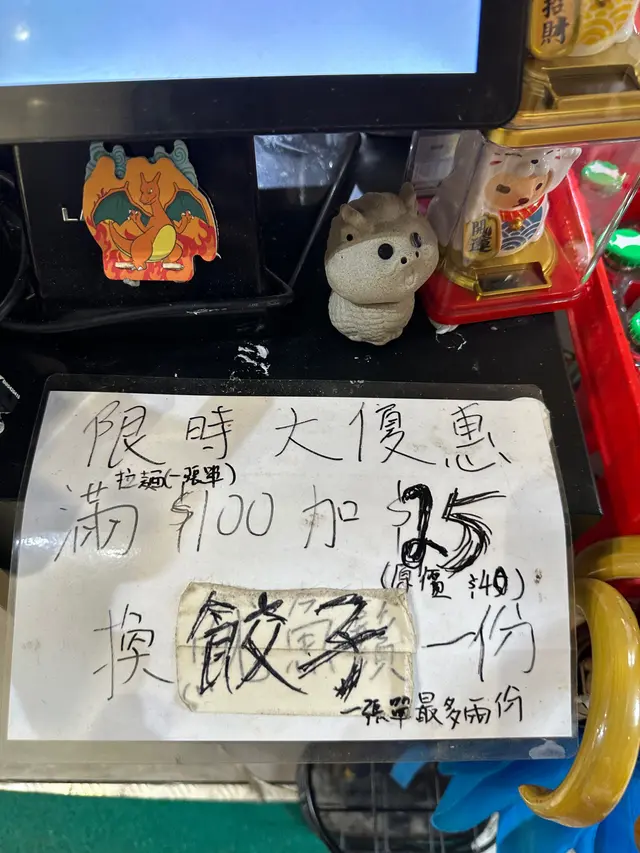 招財
開運
限時大優惠
拉麵(一張單)
滿$100加$25
(原價$40)
換餃子一份
一張單最多兩份